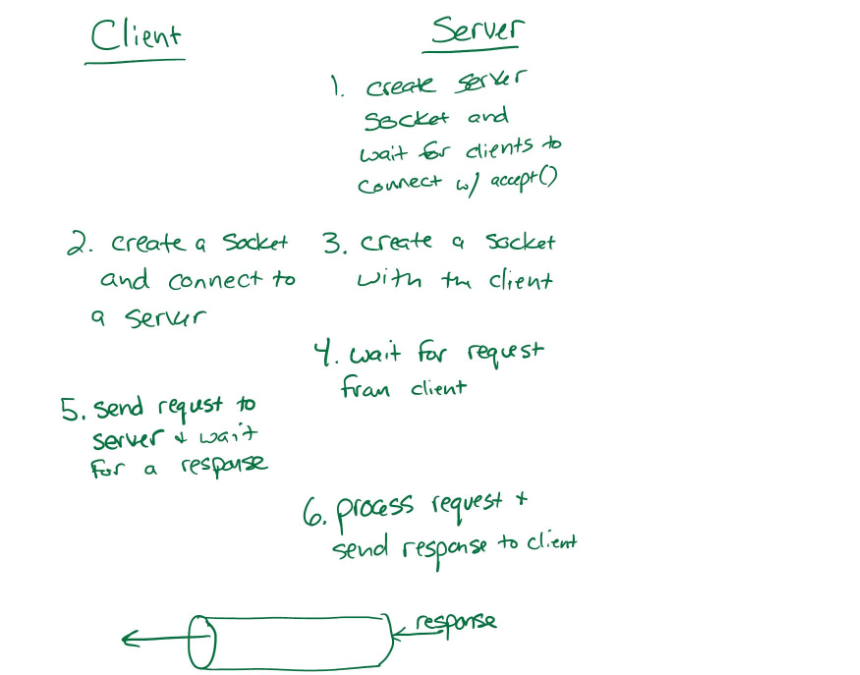 Client
Server
1. create server
socket and
wait for clients to
connect w/ accept()
2. create a socket
and connect to
a server
3. create a socket
with the client
4. wait for request
from client
5. send request to
server + wait
for a response
6. process request +
send response to client
response